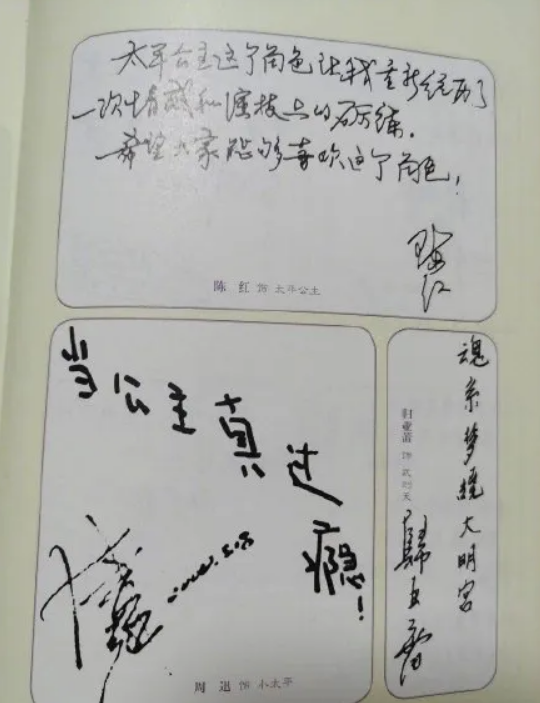 太平公主这个角色让我重新经历了
一次情感和演技上的砺练。
希望大家能够喜欢这个角色！
陈红
陈 红 饰 太平公主
当公主真过瘾！
周 迅 饰 小太平
魂系梦绕大明宫
归亚蕾 饰 武则天
歸亞蕾